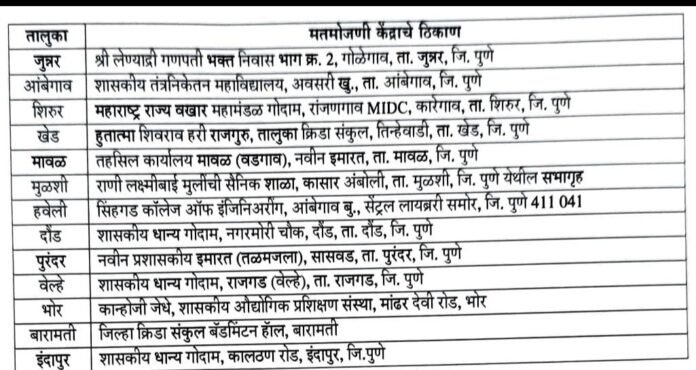 तालुका मतमोजणी केंद्राचे ठिकाण
जुन्नर श्री लेण्याद्री गणपती भक्त निवास भाग क्र. 2, गोळेगाव, ता. जुन्नर, जि. पुणे
आंबेगाव शासकीय तंत्रनिकेतन महाविद्यालय, अवसरी खु., ता. आंबेगाव, जि. पुणे
शिरुर महाराष्ट्र राज्य वखार महामंडळ गोदाम, रांजणगाव MIDC, कारेगाव, ता. शिरुर, जि. पुणे
खेड हुतात्मा शिवराव हरी राजगुरु, तालुका क्रिडा संकुल, तिन्हेवाडी, ता. खेड, जि. पुणे
मावळ तहसिल कार्यालय मावळ (वडगाव), नवीन इमारत, ता. मावळ, जि. पुणे
मुळशी राणी लक्ष्मीबाई मुलींची सैनिक शाळा, कासार अंबोली, ता. मुळशी, जि. पुणे येथील सभागृह
हवेली सिंहगड कॉलेज ऑफ इंजिनिअरींग, आंबेगाव बु., सेंट्रल लायब्ररी समोर, जि. पुणे 411 041
दौंड शासकीय धान्य गोदाम, नगरमोरी चौक, दौंड, ता. दौंड, जि. पुणे
पुरंदर नवीन प्रशासकीय इमारत (तळमजला), सासवड, ता. पुरंदर, जि. पुणे
वेल्हे शासकीय धान्य गोदाम, राजगड (वेल्हे), ता. राजगड, जि. पुणे
भोर कान्होजी जेधे, शासकीय औद्योगिक प्रशिक्षण संस्था, मांढर देवी रोड, भोर
बारामती जिल्हा क्रिडा संकुल बॅडमिंटन हॉल, बारामती
इंदापुर शासकीय धान्य गोदाम, कालठण रोड, इंदापुर, जि.पुणे